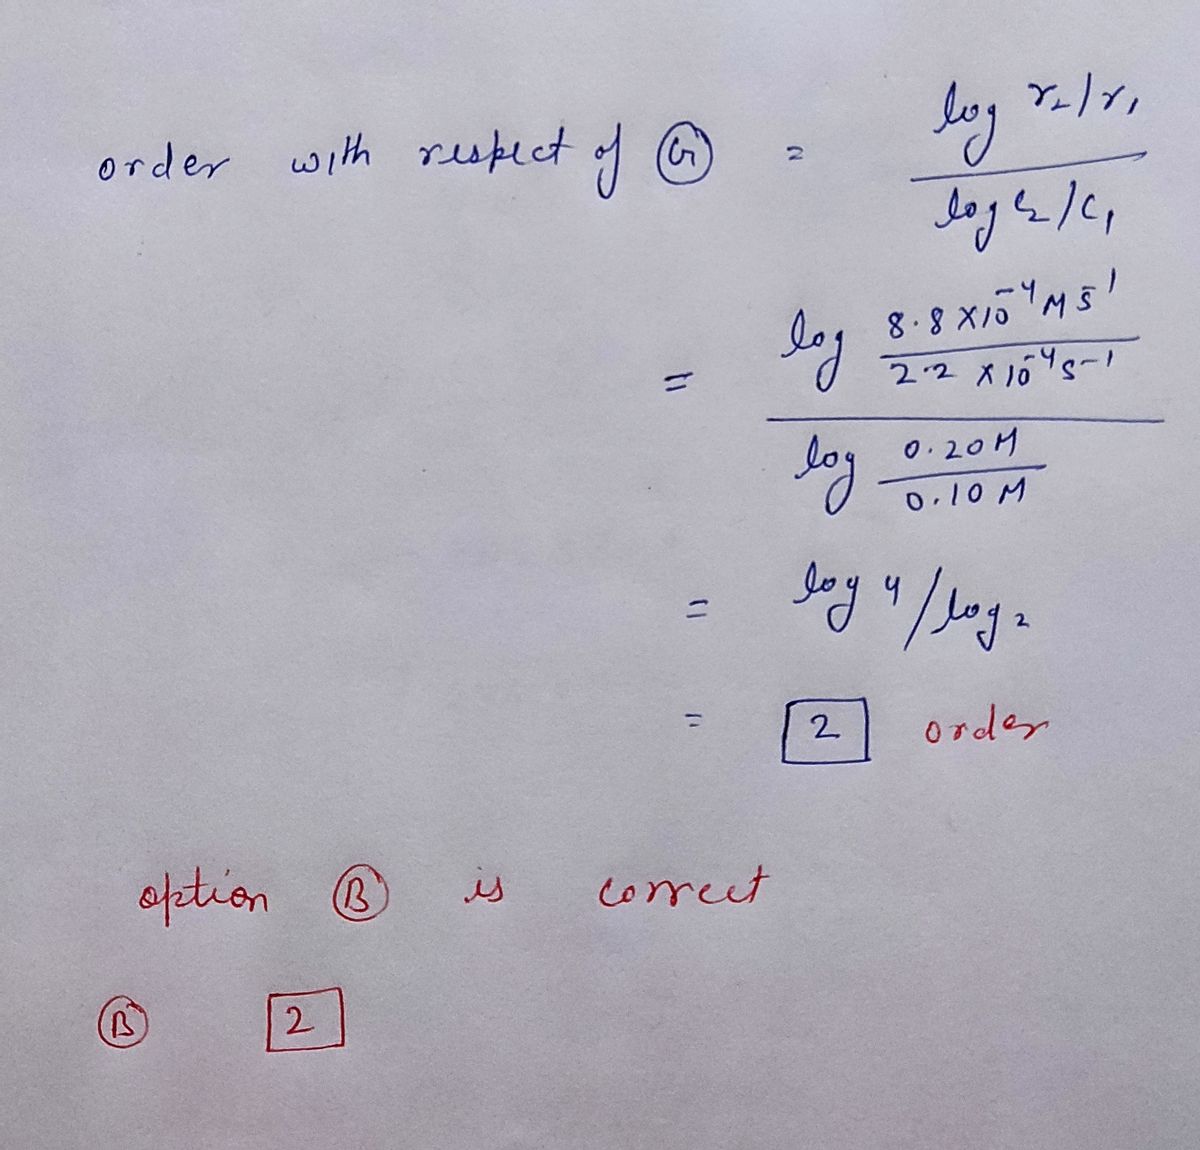 order with respect of G = log r₂/r₁
log c₂/c₁
= log 8.8 X10⁻⁴ M S⁻¹
2.2 X 10⁻⁴ S⁻¹
log 0.20M
0.10 M
= log 4 / log 2
= 2 order
option B is correct
B 2